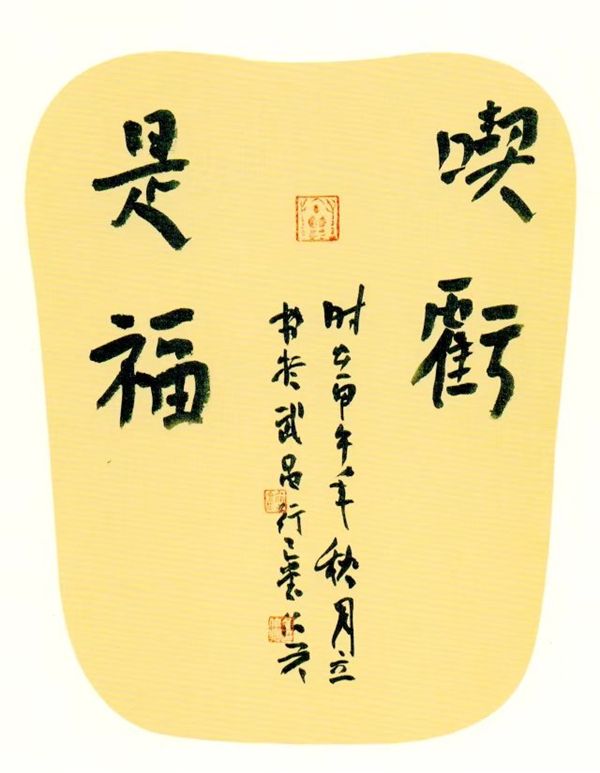 喫虧
是福
时在甲午年秋月立
书於武昌行